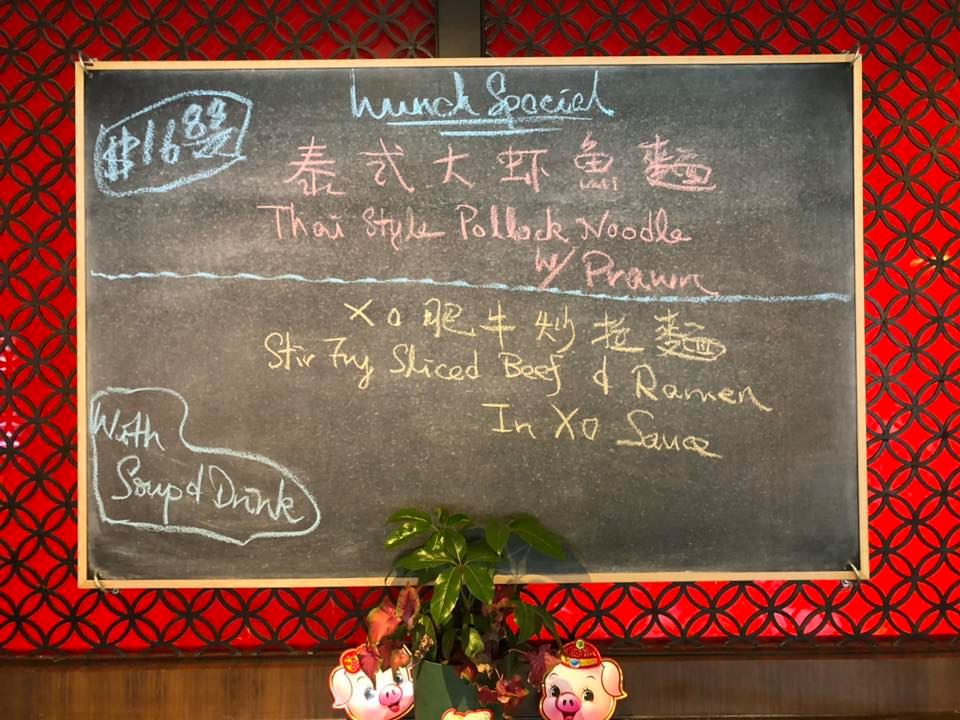 $16.88
Lunch Special
泰式大虾魚麵
Thai Style Pollock Noodle
w/ Prawn
XO肥牛炒拉麵
Stir Fry Sliced Beef & Ramen
In XO Sauce
With
Soup & Drink